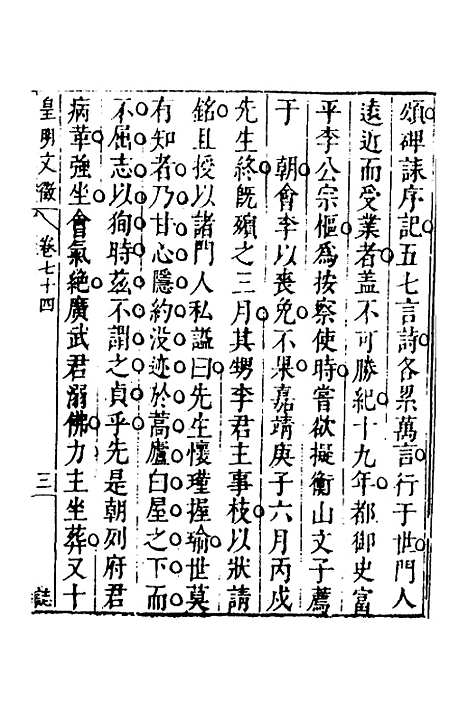 頌碑誄序記五七言詩各累萬言行于世門人
遠近而受業者蓋不可勝紀十九年都御史富
平李公宗樞為按察使時嘗欲擬衡山文子薦
于　朝會李以喪免不果嘉靖庚子六月丙戌
先生終既殯之三月其甥李君主事枝以狀請
銘且授以諸門人私謚曰先生懷瑾握瑜世莫
有知者乃甘心隱約没迹於蒿廬白屋之下而
不屈志以狥時茲不謂之貞乎先是朝列府君
病革強坐會氣絶廣武君溺佛力主坐葬又十
皇明文徵　卷七十四　三　誌